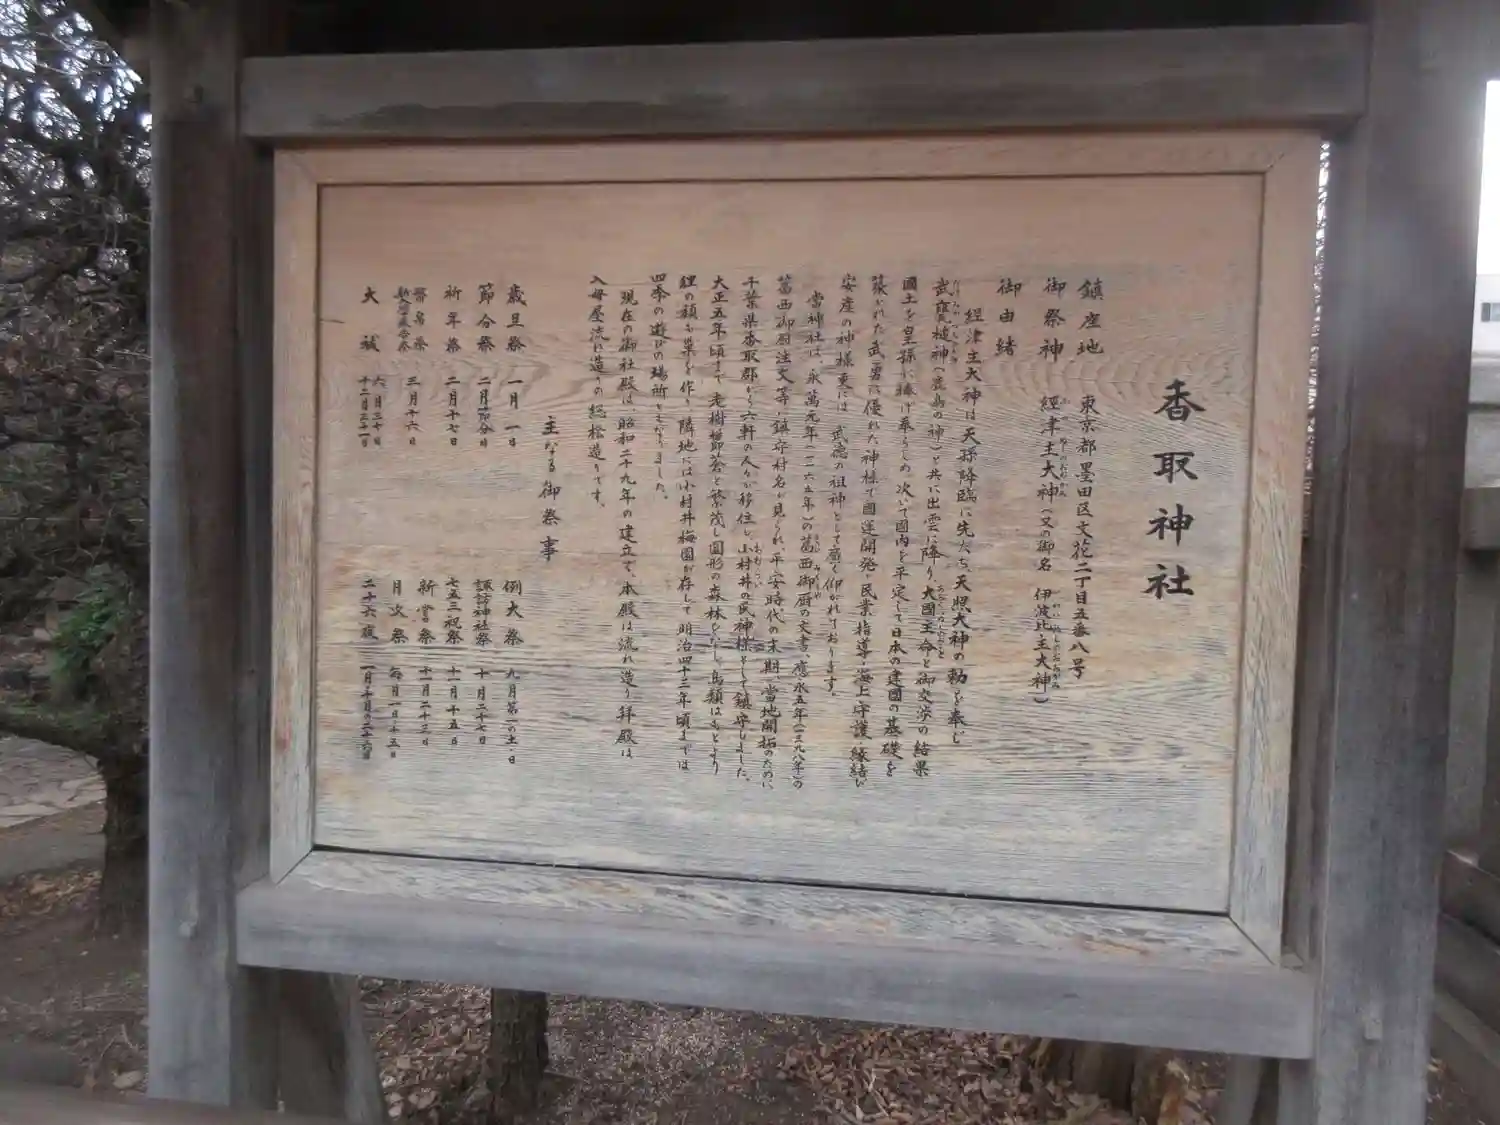 香取神社
鎮座地 東京都墨田区文花二丁目五番八号
御祭神 經津主大神(又の御名 伊波比主大神)
御由緒
經津主大神は天孫降臨に先だち、天照大神の勅を奉じ
武甕槌神(鹿島の神)と共に出雲に降り、大國主命と御交渉の結果
國土を皇孫に捧げ奉らしめ、次いで国内を平定して日本の建国の基礎を
築かれた武勇に優れた神様で國運開発・民業指導・海上守護・縁結び
安産の神様更には、武徳の祖神として廣く仰がれております。
當神社は、永萬元年(一一六五年)の葛西御厨の文書、應永五年(一三九八年)の
葛西御厨注文等に鎮守村名が見られ、平安時代の末期、當地開拓のために
千葉県香取郡から六軒の人々が移住し、小村井の氏神様として鎮守しました。
大正五年頃まで老樹鬱蒼と繁茂し圓形の森林をなし、鳥類はもとより
狸の類も巣を作り、隣地には小村井梅園が存して明治四十三年頃までは
四季の遊びの場所となりました。
現在の御社殿は、昭和二十九年の建立で、本殿は流れ造り拝殿は
入母屋流れ造りの総桧造りです。
主なる御祭事
歳旦祭 一月一日
節分祭 二月節分日
祈年祭 二月十七日
三月十六日
大祓 六月三十日 十二月三十一日
例大祭 九月第一の土日
諏訪神社祭 十月二十七日
七五三祝祭 十一月十五日
新嘗祭 十一月二十三日
月次祭 毎月一日十五日
二十六夜